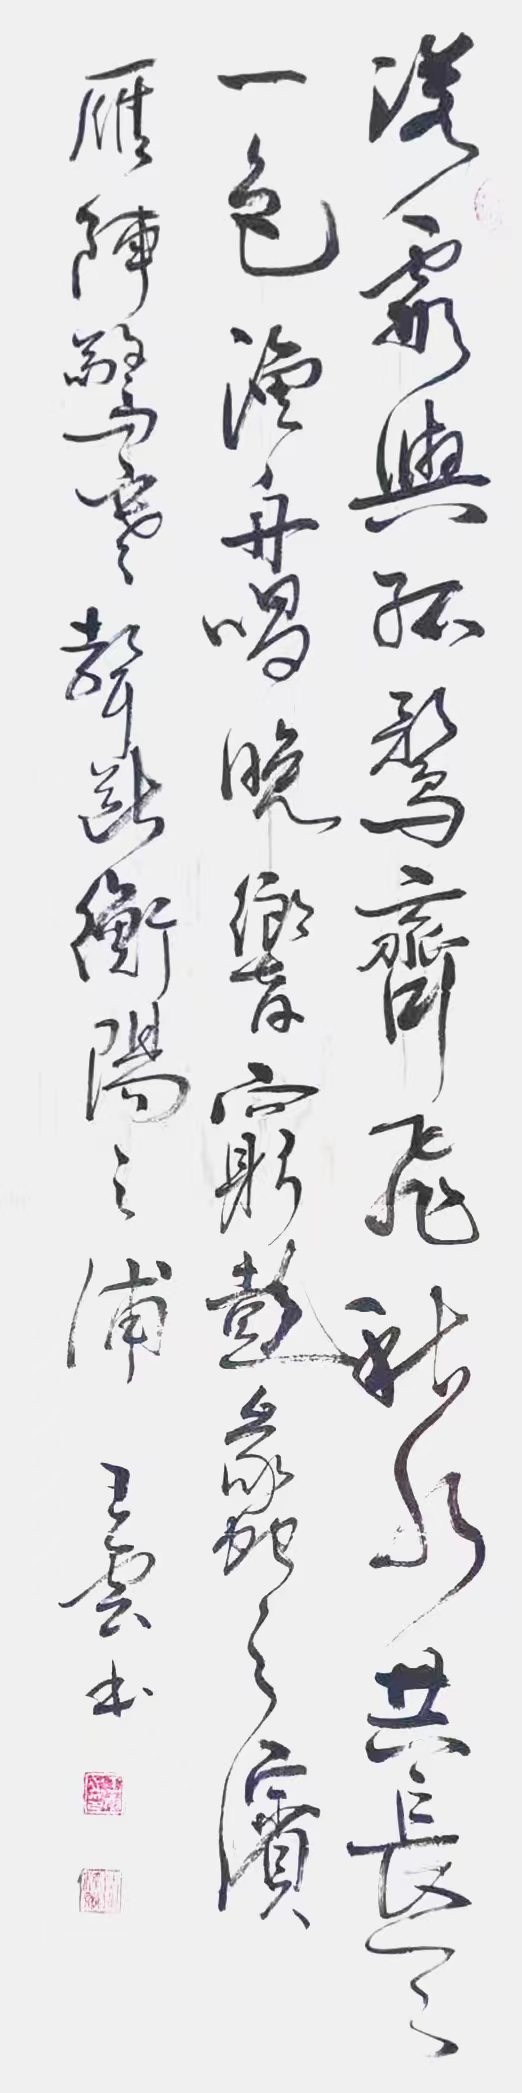 落霞與孤鶩齊飛秋水共長天
一色漁舟唱晚響窮彭蠡之濱
雁陣驚寒聲斷衡陽之浦
王雲书